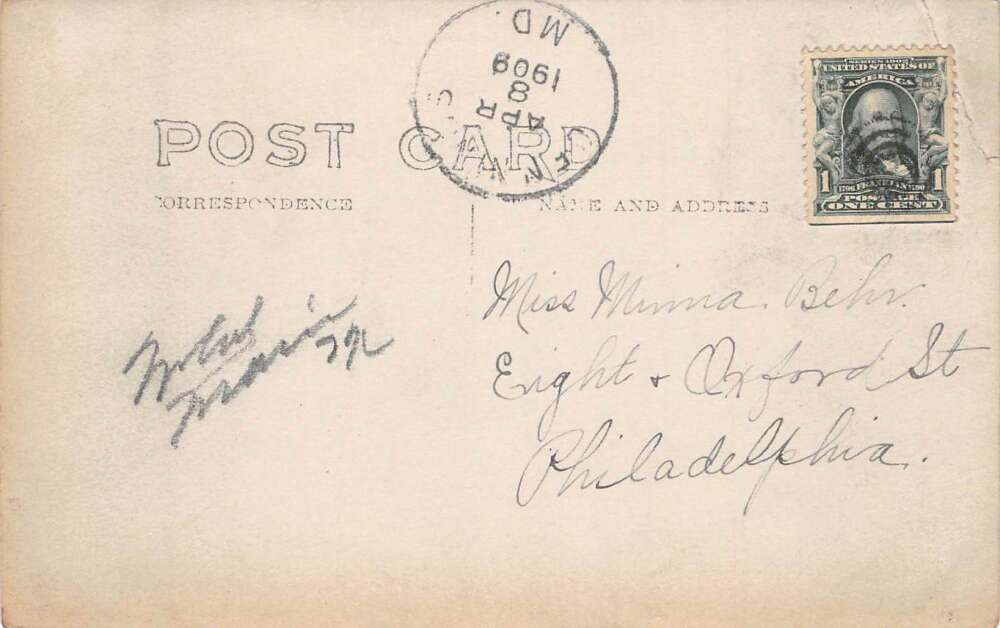 MD.
1909
8
APR
SERIES 1902
UNITED STATES OF
AMERICA
1
1706 FRANKLIN 1790
1
POSTAGE
ONE CENT
POST CARD
CORRESPONDENCE
NAME AND ADDRESS
Miss Minna Behr.
Eight + Oxford St
Philadelphia.